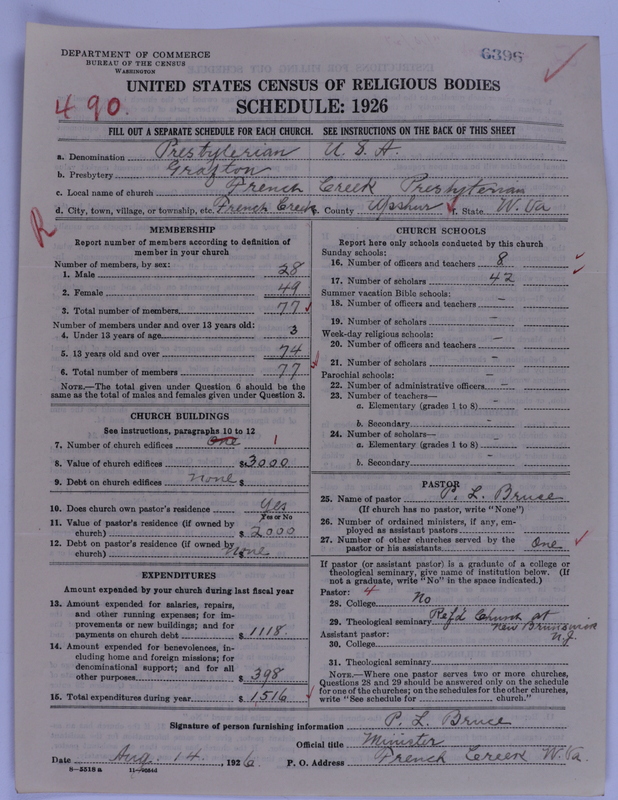 DEPARTMENT OF COMMERCE
BUREAU OF THE CENSUS
WASHINGTON
6396
UNITED STATES CENSUS OF RELIGIOUS BODIES
490.
SCHEDULE: 1926
FILL OUT A SEPARATE SCHEDULE FOR EACH CHURCH. SEE INSTRUCTIONS ON THE BACK OF THIS SHEET
a. Denomination Presbyterian U. S. A.
b. Presbytery Grafton
c. Local name of church French Creek Presbyterian
d. City, town, village, or township, etc. French Creek e. County Upshur f. State W. Va
R
MEMBERSHIP
Report number of members according to definition of
member in your church
Number of members, by sex:
1. Male 28
2. Female 49
3. Total number of members 77
Number of members under and over 13 years old:
4. Under 13 years of age 3
5. 13 years old and over 74
6. Total number of members 77
NOTE.—The total given under Question 6 should be
same as the total of males and females given under Question 3.
CHURCH BUILDINGS
See instructions, paragraphs 10 to 12
7. Number of church edifices One 1
8. Value of church edifices $3000
9. Debt on church edifices None $
10. Does church own pastor's residence Yes
Yes or No
11. Value of pastor's residence (if owned by
church) $ 2000
12. Debt on pastor's residence (if owned by
church) $ None
EXPENDITURES
Amount expended by your church during last fiscal year
13. Amount expended for salaries, repairs,
and other running expenses; for im-
provements or new buildings; and for
payments on church debt $ 1118.
14. Amount expended for benevolences, in-
cluding home and foreign missions; for
denominational support; and for all
other purposes $ 398
15. Total expenditures during year $ 1516
CHURCH SCHOOLS
Report here only schools conducted by this church
Sunday schools:
16. Number of officers and teachers 8
17. Number of scholars 42
Summer vacation Bible schools:
18. Number of officers and teachers –
19. Number of scholars –
Week-day religious schools:
20. Number of officers and teachers –
21. Number of scholars –
Parochial schools:
22. Number of administrative officers –
23. Number of teachers—
a. Elementary (grades 1 to 8) –
b. Secondary –
24. Number of scholars—
a. Elementary (grades 1 to 8) –
b. Secondary –
PASTOR
25. Name of pastor P. L. Bruce
(If church has no pastor, write "None")
26. Number of ordained ministers, if any, em-
ployed as assistant pastors
27. Number of other churches served by the
pastor or his assistants One
If pastor (or assistant pastor) is a graduate of a college or
theological seminary, give name of institution below. (If
not a graduate, write "No" in the space indicated.)
Pastor: 4
28. College No
29. Theological seminary Ref'd Church at
New Brunswick
N.J.
Assistant pastor:
30. College
31. Theological seminary
NOTE.—Where one pastor serves two or more churches,
Questions 28 and 29 should be answered only on the schedule
for one of the churches; on the schedules for the other churches,
write "See schedule for church."
Signature of person furnishing information P. L. Bruce
Official title Minister
Date Aug. 14, 1926 P. O. Address French Creek W. Va.
8—5518 a